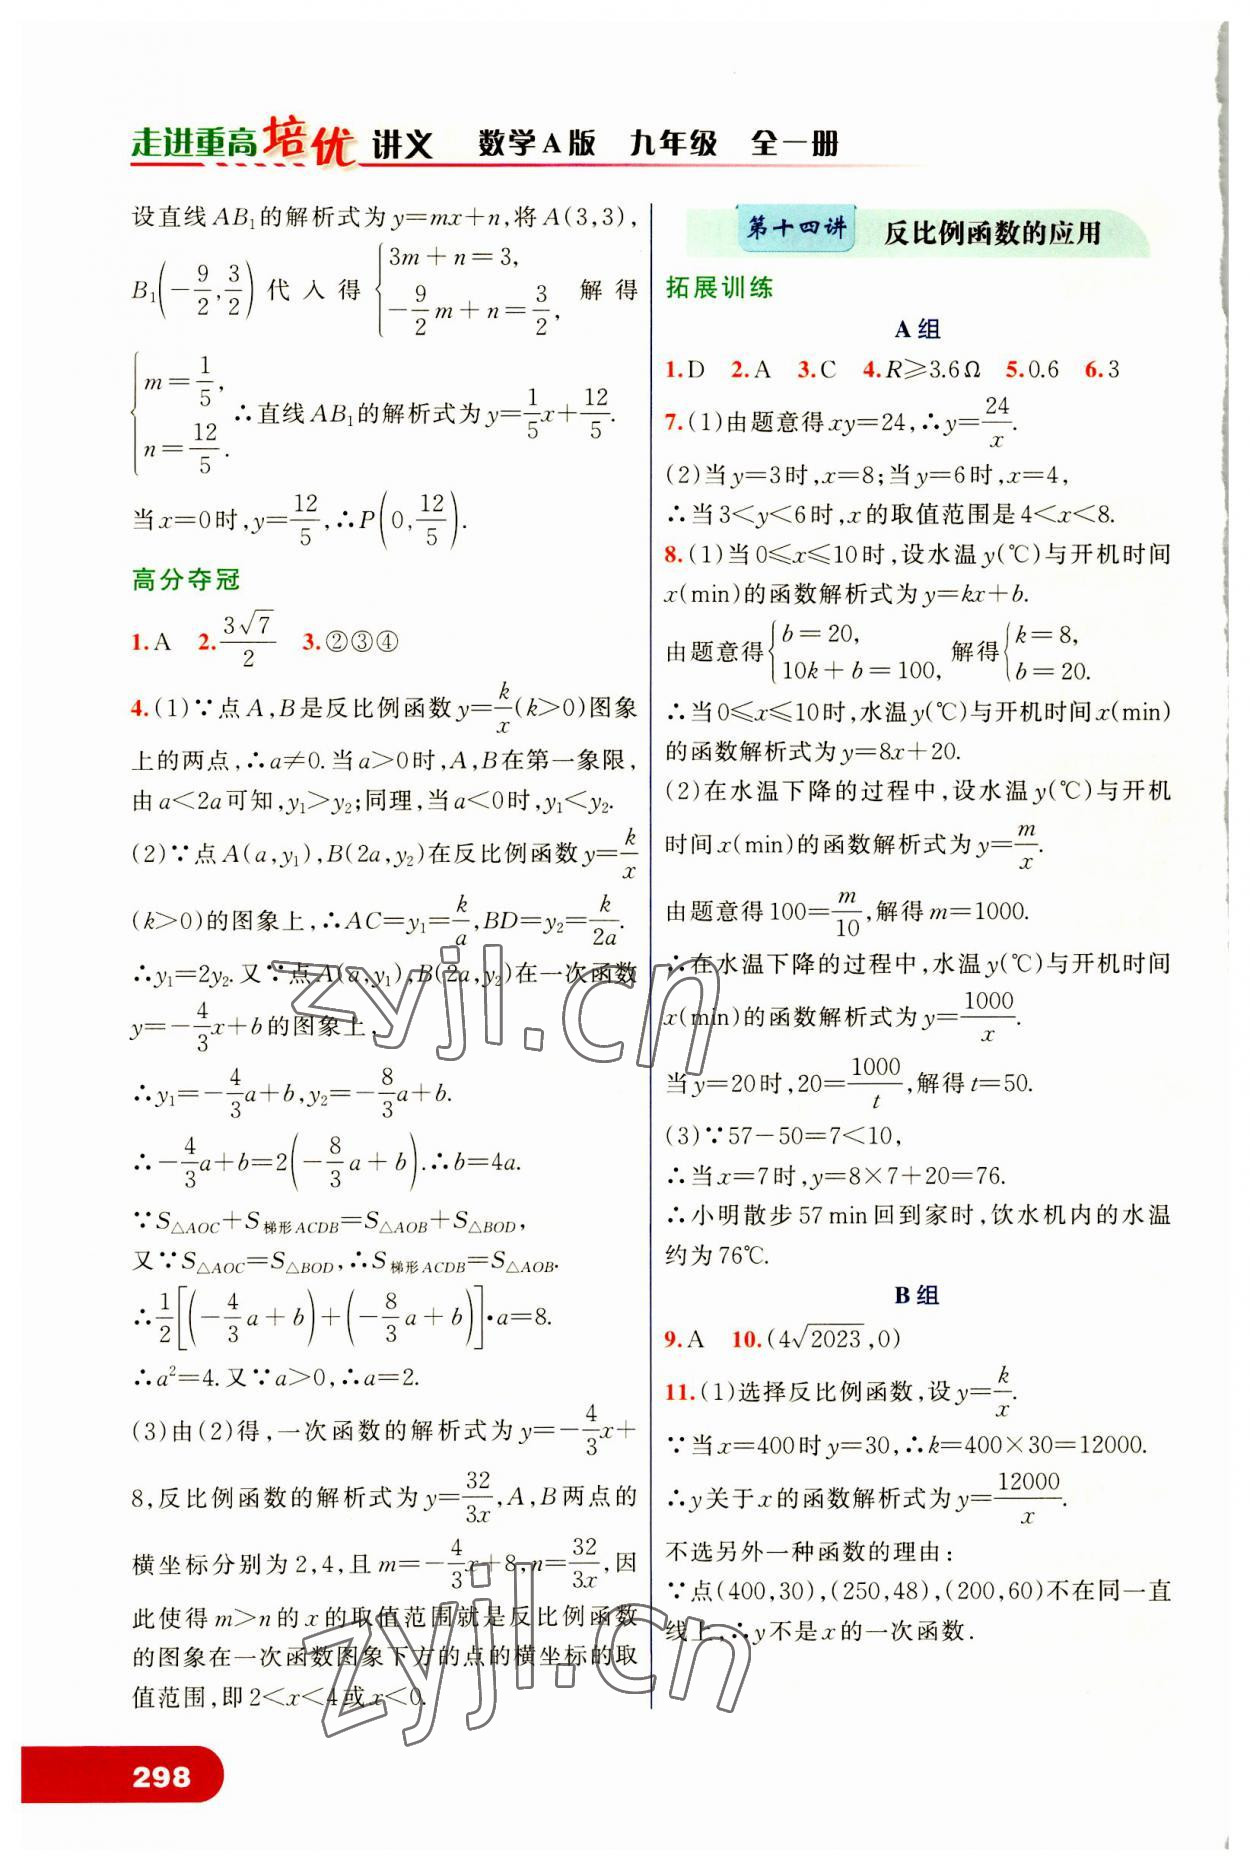 走进重高培优 讲义 数学A版 九年级 全一册
设直线AB₁的解析式为y=mx+n,将A(3,3),
B₁(-9/2,3/2)代入得{3m+n=3, -9/2m+n=3/2, 解得
{m=1/5, n=12/5. ∴直线AB₁的解析式为y=1/5x+12/5.
当x=0时,y=12/5,∴P(0,12/5).
高分夺冠
1.A 2.3√7/2 3.②③④
4.(1)∵点A,B是反比例函数y=k/x(k>0)图象
上的两点,∴a≠0.当a>0时,A,B在第一象限,
由a<2a可知,y₁>y₂;同理,当a<0时,y₁<y₂.
(2)∵点A(a,y₁),B(2a,y₂)在反比例函数y=k/x
(k>0)的图象上,∴AC=y₁=k/a,BD=y₂=k/2a.
∴y₁=2y₂.又∵点A(a,y₁),B(2a,y₂)在一次函数
y=-4/3x+b的图象上,
∴y₁=-4/3a+b,y₂=-8/3a+b.
∴-4/3a+b=2(-8/3a+b).∴b=4a.
∵S△AOC+S梯形ACDB=S△AOB+S△BOD,
又∵S△AOC=S△BOD,∴S梯形ACDB=S△AOB.
∴1/2[(-4/3a+b)+(-8/3a+b)]•a=8.
∴a²=4.又∵a>0,∴a=2.
(3)由(2)得,一次函数的解析式为y=-4/3x+
8,反比例函数的解析式为y=32/3x,A,B两点的
横坐标分别为2,4,且m=-4/3x+8,n=32/3x,因
此使得m>n的x的取值范围就是反比例函数
的图象在一次函数图象下方的点的横坐标的取
值范围,即2<x<4或x<0.
298
第十四讲 反比例函数的应用
拓展训练
A组
1.D 2.A 3.C 4.R≥3.6Ω 5.0.6 6.3
7.(1)由题意得xy=24,∴y=24/x.
(2)当y=3时,x=8;当y=6时,x=4,
∴当3<y<6时,x的取值范围是4<x<8.
8.(1)当0≤x≤10时,设水温y(℃)与开机时间
x(min)的函数解析式为y=kx+b.
由题意得{b=20, 10k+b=100, 解得{k=8, b=20.
∴当0≤x≤10时,水温y(℃)与开机时间x(min)
的函数解析式为y=8x+20.
(2)在水温下降的过程中,设水温y(℃)与开机
时间x(min)的函数解析式为y=m/x.
由题意得100=m/10,解得m=1000.
∴在水温下降的过程中,水温y(℃)与开机时间
x(min)的函数解析式为y=1000/x.
当y=20时,20=1000/t,解得t=50.
(3)∵57-50=7<10,
∴当x=7时,y=8×7+20=76.
∴小明散步57 min回到家时,饮水机内的水温
约为76℃.
B组
9.A 10.(4√2023,0)
11.(1)选择反比例函数,设y=k/x.
∵当x=400时y=30,∴k=400×30=12000.
∴y关于x的函数解析式为y=12000/x.
不选另外一种函数的理由:
∵点(400,30),(250,48),(200,60)不在同一直
线上,∴y不是x的一次函数.
zyjl.cn
zyjl.cn